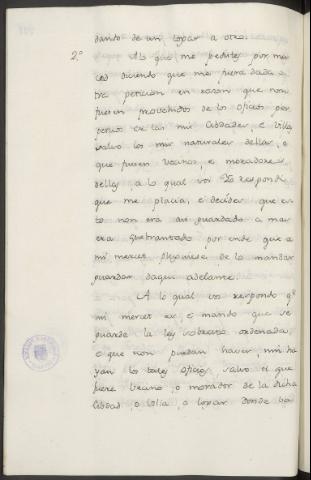 dando de un logar a otro.
2.º A lo que me pedistes por mer
ced diciendo que me fuera dada o
tra peticion en rason que non
fuesen provehidos de los oficios per
petuos en las mis cibdades, e villas
salvo los mis naturales dellas, e
que fuesen vecinos, e moradores
dellas, a lo qual vos Yo respondi
que me placia, e decides que es
to non era asi guardado a mas
era quebrantado por ende que a
mi merced ploguiese de lo mandar
guardar daqui adelante.
A lo qual vos respondo q.e
mi merced es, e mando que se
guarde la ley sobresto ordenada,
e que non puedan haver, nin ha
yan los tales oficios, salvo el que
fuere vecino, o morador de la dicha
cibdad, o villa, o logar donde va